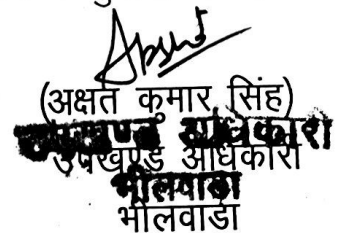 (अक्षत कुमार सिंह)
उपखण्ड अधिकारी
उपखण्ड अधिकारी
भीलवाडा
भीलवाडा